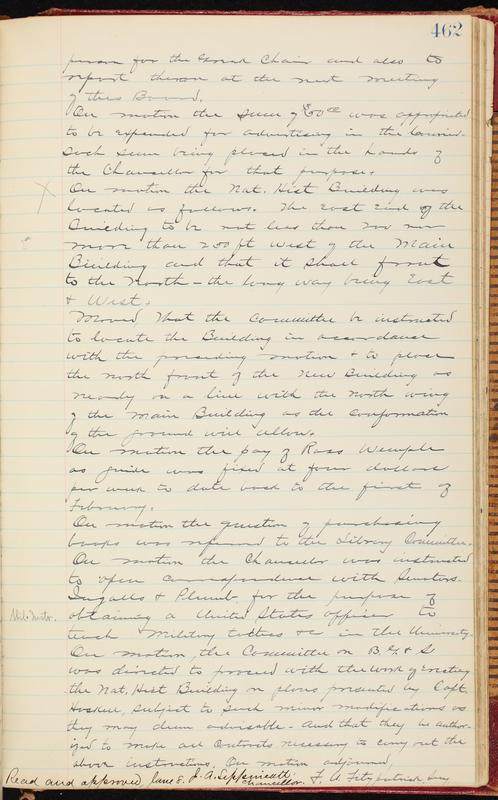 462
person for the Greek Chair and also to
report thereon at the next meeting
of this Board.
On motion the sum of was appropriated
to be expended for advertising in the
such sum being placed in the hands of
the Chancellor for that purpose.
On motion the Nat. Hist Building was
located as follows. The East End of the
Building to be not less than 200 nor
more than 250 ft West of the Main
Building and that it shall front
to the North - the long way being East
& West.
Moved That the Committee be instructed
to locate the Building in accordance
with the preceeding motion & to place
the north front of the New Building as
nearly on a line with the North wing
of the Main Building as the conformation
of the ground will allow.
On motion the pay of Ross Wemple
as guide was fixed at four dollars
per week to date back to the first of
February.
On motion the question of purchasing
books was referred to the Library Committee.
On motion the Chancellor was instructed
to open correspondence with Senators
Ingalls & Plumb for the purpose of
Mil. Instr.
obtaining a United States officer to
teach Military tactics &c in the University.
On motion, the Committee on B. G. & S
was directed to proceed with the work of Erecting
the Nat, Hist Building on plans presented by Capt
Haskell, subject to such minor modifications as
they may deem advisable - And that they be author-
ized to make all Contracts necessary to carry out the
above instructions. On motion adjourned,
Read and approved June 8. J. A. Lippincott, Chancellor. F. A. Fitzpatrick Sec